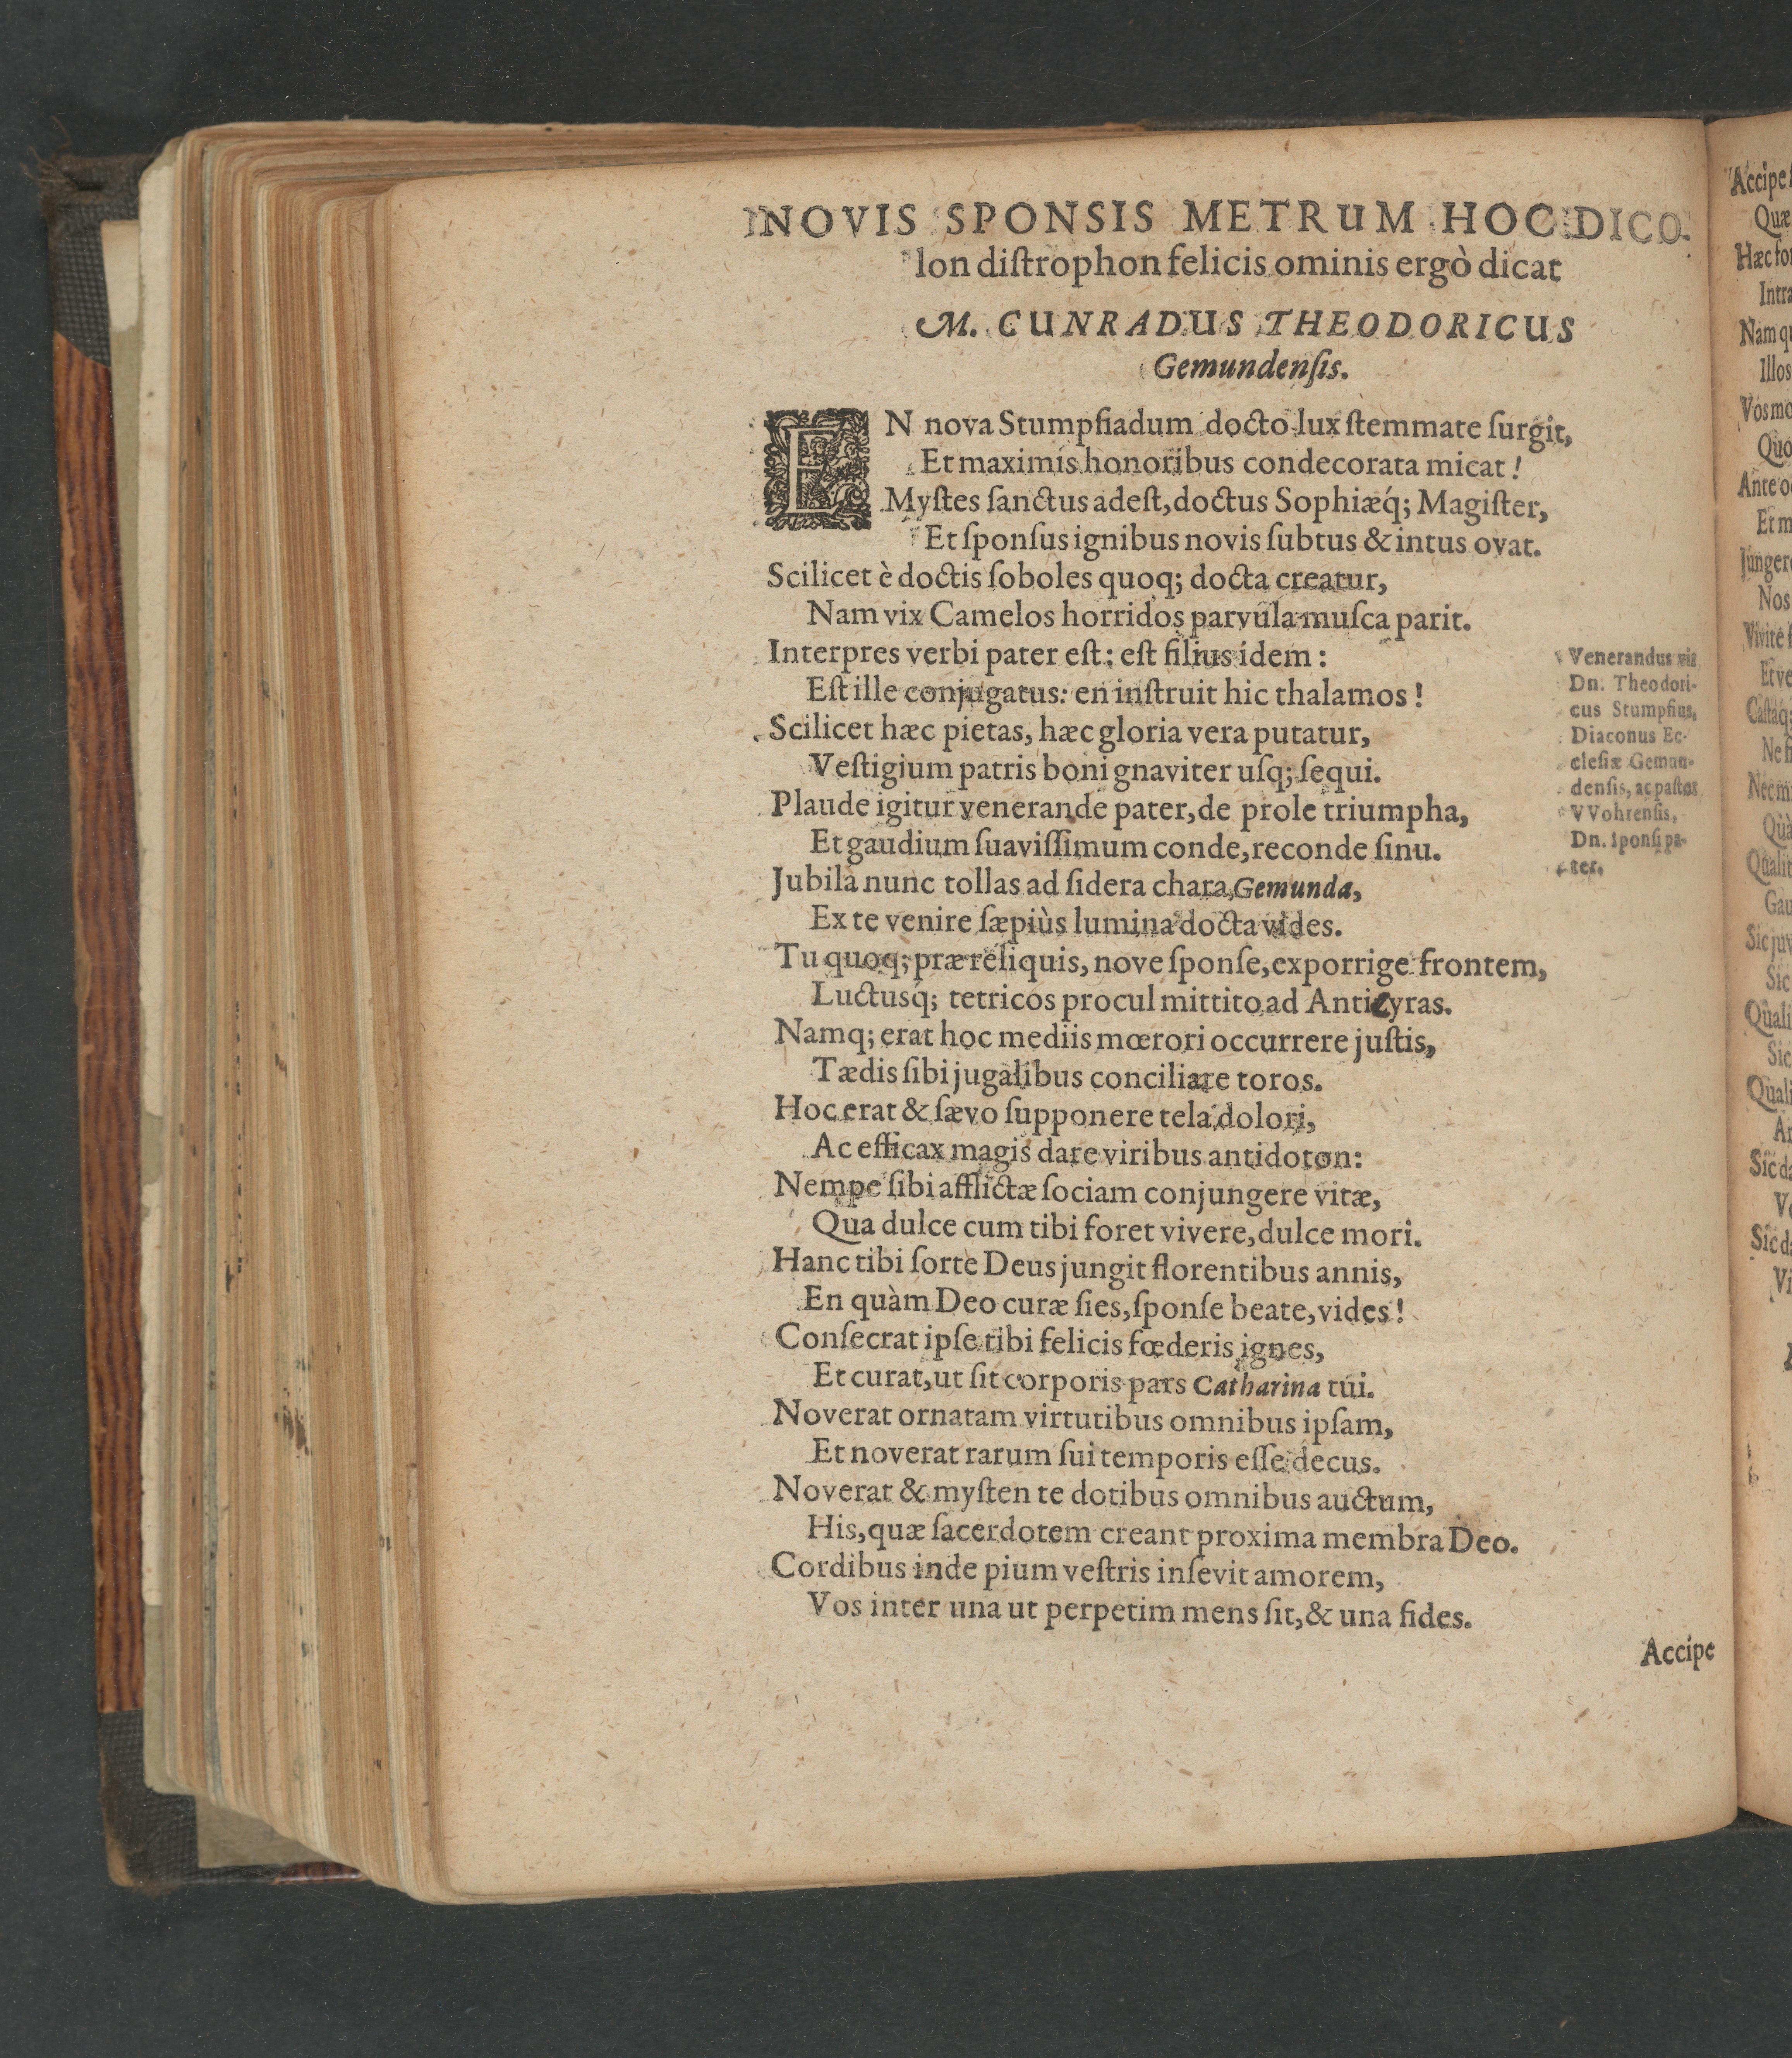 NOVIS SPONSIS METRUM HOC DICO-
lon diſtrophon felicis ominis ergò dicat
M. CUNRADUS THEODORICUS
Gemundenſis.
EN nova Stumpfiadum docto lux ſtemmate ſurgit,
Et maximis honoribus condecorata micat!
Myſtes ſanctus adeſt, doctus Sophiæq́; Magiſter,
Et ſponſus ignibus novis ſubtus & intus ovat.
Scilicet è doctis ſoboles quoq; docta creatur,
Nam vix Camelos horridos parvula muſca parit.
Interpres verbi pater eſt: eſt filius idem:
Eſt ille conjugatus: en inſtruit hic thalamos!
Scilicet hæc pietas, hæc gloria vera putatur,
Veſtigium patris boni gnaviter uſq; ſequi.
Plaude igitur venerande pater, de prole triumpha,
Et gaudium ſuaviſſimum conde, reconde ſinu.
Jubila nunc tollas ad ſidera chara Gemunda,
Ex te venire ſæpiùs lumina docta vides.
Tu quoq; præ reliquis, nove ſponſe, exporrige frontem,
Luctusq́; tetricos procul mittito ad Anticyras.
Namq; erat hoc mediis mœrori occurrere juſtis,
Tædis ſibi jugalibus conciliare toros.
Hoc erat & ſævo ſupponere tela dolori,
Ac efficax magis dare viribus antidoton:
Nempe ſibi afflictæ ſociam conjungere vitæ,
Qua dulce cum tibi foret vivere, dulce mori.
Hanc tibi ſorte Deus jungit florentibus annis,
En quàm Deo curæ ſies, ſponſe beate, vides!
Conſecrat ipſe tibi felicis fœderis ignes,
Et curat, ut ſit corporis pars Catharina tui.
Noverat ornatam virtutibus omnibus ipſam,
Et noverat rarum ſui temporis eſſe decus.
Noverat & myſten te dotibus omnibus auctum,
His, quæ ſacerdotem creant proxima membra Deo.
Cordibus inde pium veſtris inſevit amorem,
Vos inter una ut perpetim mens ſit, & una fides.
Accipe
Venerandus vir
Dn. Theodori-
cus Stumpfius,
Diaconus Ec-
cleſiæ Gemun-
denſis, ac paſtor
VVohrenſis,
Dn. ſponſi pa-
ter.
Accipe
Quæ
Hæc
Intra
Nam
Illos
Vos
Quo
Ante
Et
Nos
Vivite
Et
Ne
Sic
Sic
Sic
Sic